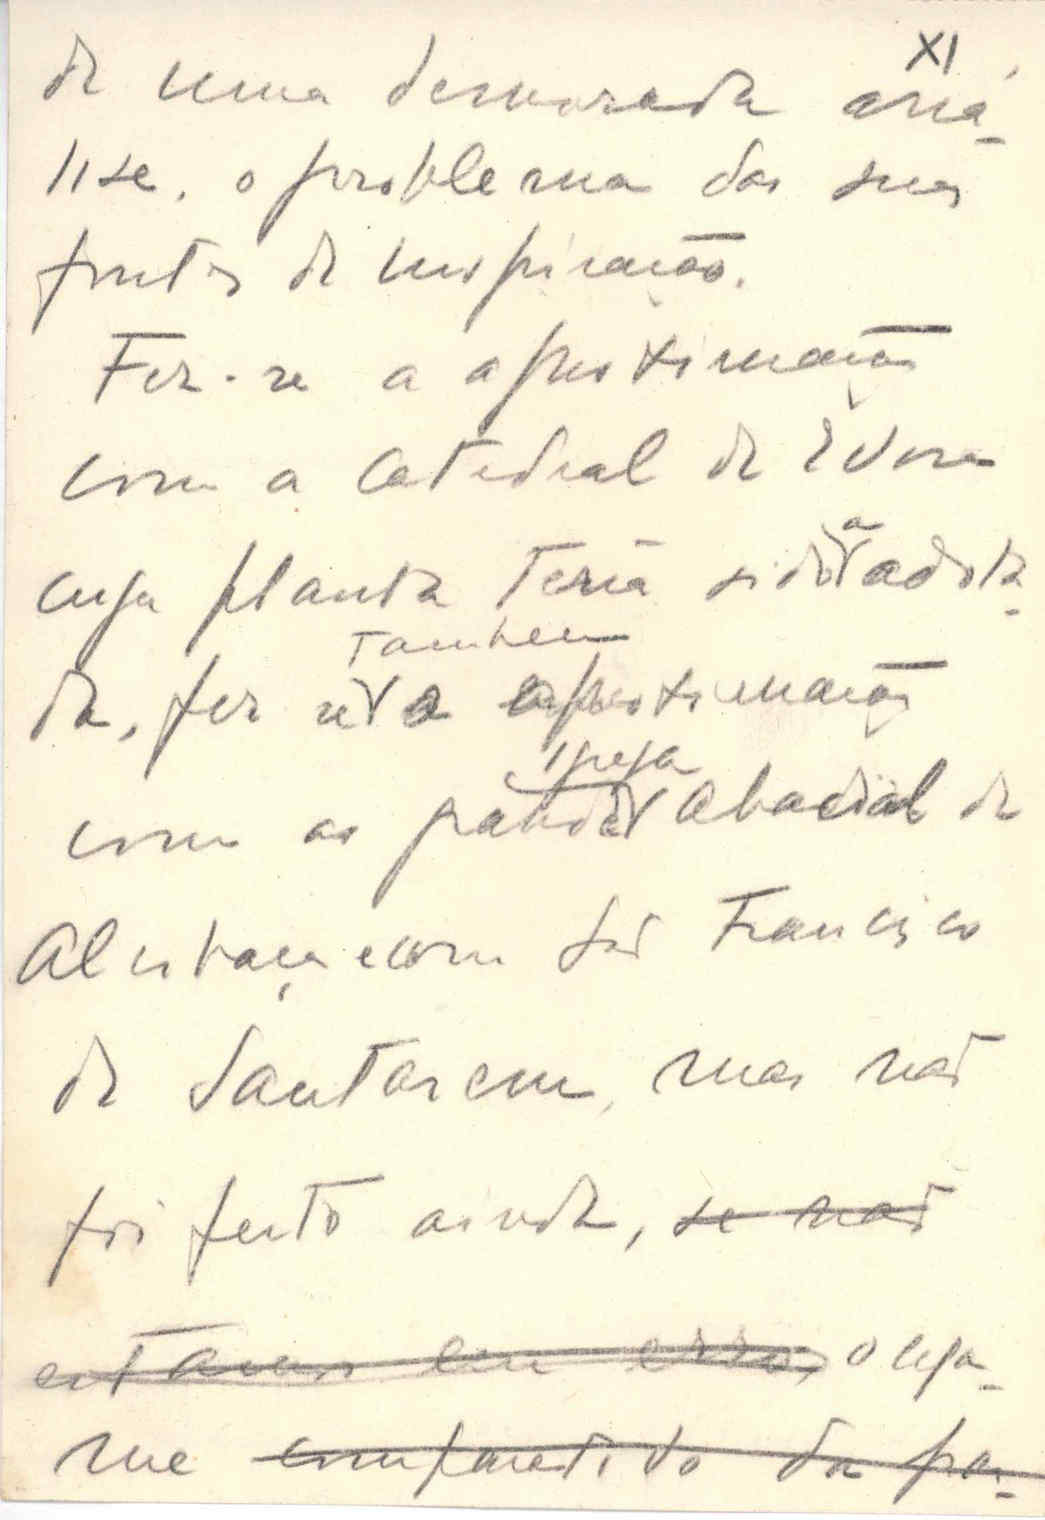 XI
de uma demorada aná-
lise, o problema das suas
fontes de inspiração.
Fez-se a aproximação
com a Catedral de Evora
cuja planta teria sido a adota-
da, fez se tambem a aproximação
com a grande igreja abacial de
Alcobaça e com São Francisco
de Santarem, mas não
foi feito ainda, se não
estamos em erro, o exa-
me comparativo da pa-